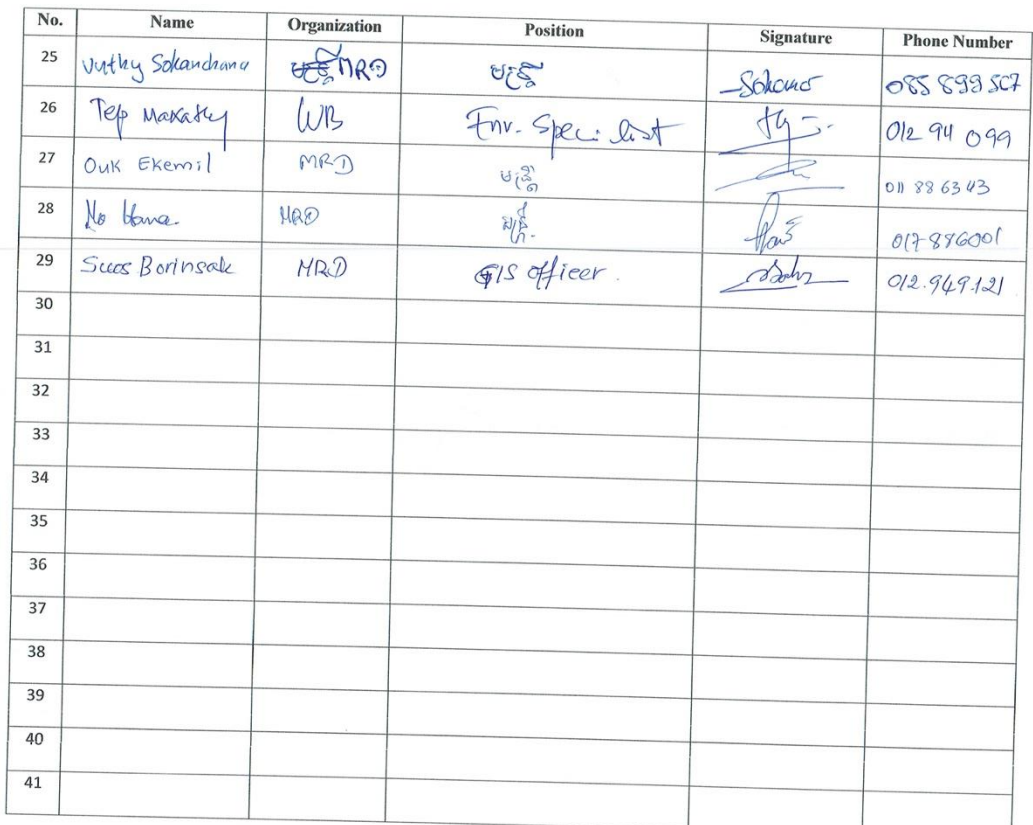 No. Name Organization Position Signature Phone Number
25 Vuthy Sokanchana មន្ត្រី MRD មន្ត្រី 085 899 567
26 Tep Makathy WB Env. Specialist 012 94 099
27 Ouk Ekemil MRD មន្ត្រី 011 88 63 43
28 No MRD មន្ត្រី. 017 886001
29 Suos Borinsak MRD GIS Officer. 012.949.121
30
31
32
33
34
35
36
37
38
39
40
41